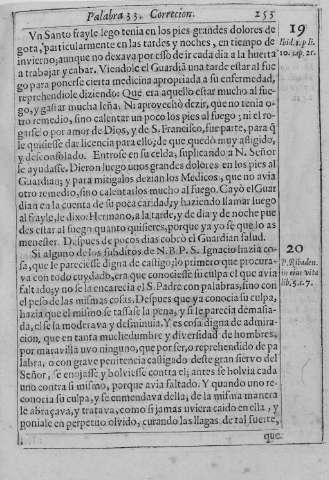 Palabra 33. Correcion. 255
Vn Santo frayle lego tenia en los pies grandes dolores de
gota, particularmente en las tardes y noches, en tiempo de
invierno; aunque no dexava por esso de ir cada dia a la huerta
a trabajar y cabar. Viendole el Guardiã una tarde estar al fue
go para ponerse cierta medicina apropiada a su enfermedad,
reprehendiole diziendo: Que era aquello estar mucho al fue-
go, y gastar mucha leña. Ni aprovechò dezir, que no tenia o-
tro remedio, sino calentar un poco los pies al fuego; ni el ro-
garselo por amor de Dios, y de S. Francisco, fue parte, para q̃
le quisiesse dar licencia para ello; de que quedò muy afligido,
y desconsolado. Entrose en su celda, suplicando a N. Señor
le ayudasse. Dieron luego unos grandes dolores en los pies al
Guardian; y para mitigalos dezian los Medicos, que no avia
otro remedio, sino calentarlos mucho al fuego. Cayò el Guar
dian en la cuenta de su poca caridad, y haziendo llamar luego
al frayle, le dixo: Hermano, a la tarde, y de dia y de noche pue
des estar al fuego quanto quisieres, porque ya yo se que lo as
menester. Despues de pocos dias cobrò el Guardian salud.
Si alguno de los subditos de N. B. P. S. Ignacio hazia co-
sa, que le pareciesse digna de castigo, lo primero que procura-
va con todo cuydado, era que conociesse su culpa el que avia
faltado; y no se la encarecia el S. Padre con palabras, sino con
el peso de las mismas cosas. Despues que ya conocia su culpa,
hazia que el mismo se tassasse la pena, y si le parecia demasia-
da, el se la moderava y desminuia. Y es cosa digna de admira-
cion, que en tanta muchedumbre y diversidad de hombres,
por maravilla uvo ninguno, que por ser, o reprehendido de pa
labra, o con grave penitencia castigado deste gran siervo del
Señor, se enojasse y bolviesse contra el; antes se bolvia cada
uno contra si mismo, porque avia faltado. Y quando uno re-
conocia su culpa, y se enmendava della, de la misma manera
le abraçava, y tratava, como si jamas uviera caido en ella, y
poniale en perpetuo olvido, curando las llagas de tal suerte,
que
19
10. cap. 21.
20
P. Ribaden.
in eius vita
lib. 5. c. 7.